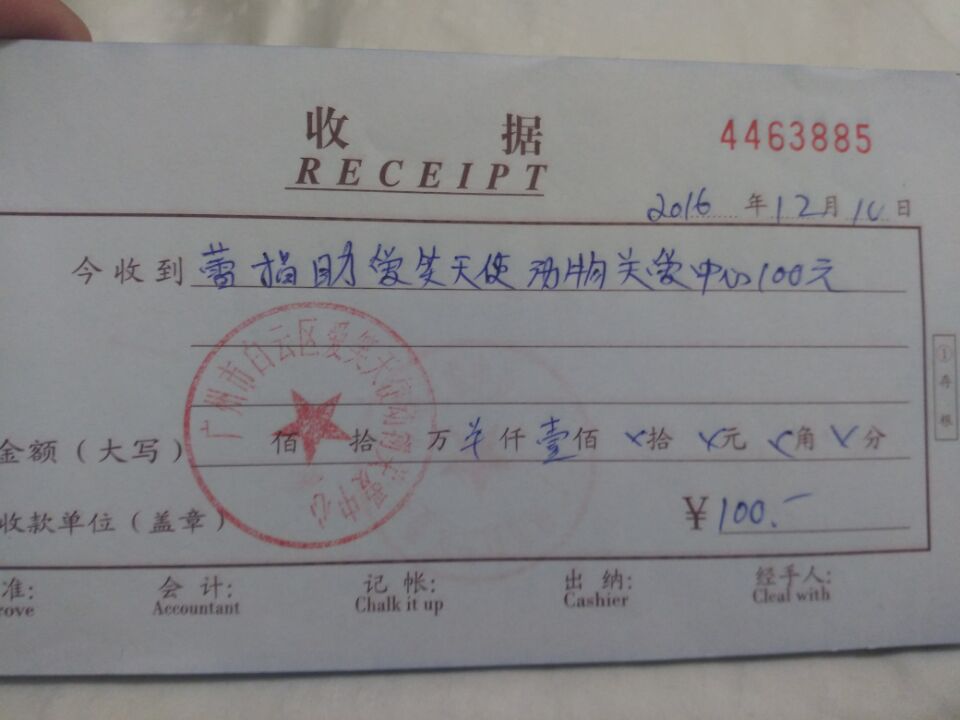 收 据
RECEIPT
4463885
2016 年 12 月 10 日
今收到 蕾捐助爱笑天使动物关爱中心100元
广州市白云区爱笑天使动物关爱中心
金额(大写) 佰 拾 万 仟 壹 佰 拾 元 角 分
收款单位(盖章) ¥100.-
①存根
准: 会 计: 记 帐: 出 纳: 经手人:
rove Accountant Chalk it up Cashier Cleal with